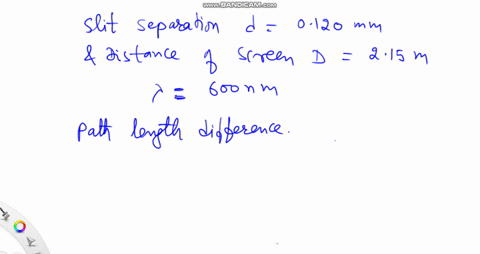 WWW.BANDICAM.COM
slit separation d = 0.120 mm
& distance of screen D = 2.15 m
λ = 600 nm
path length difference.